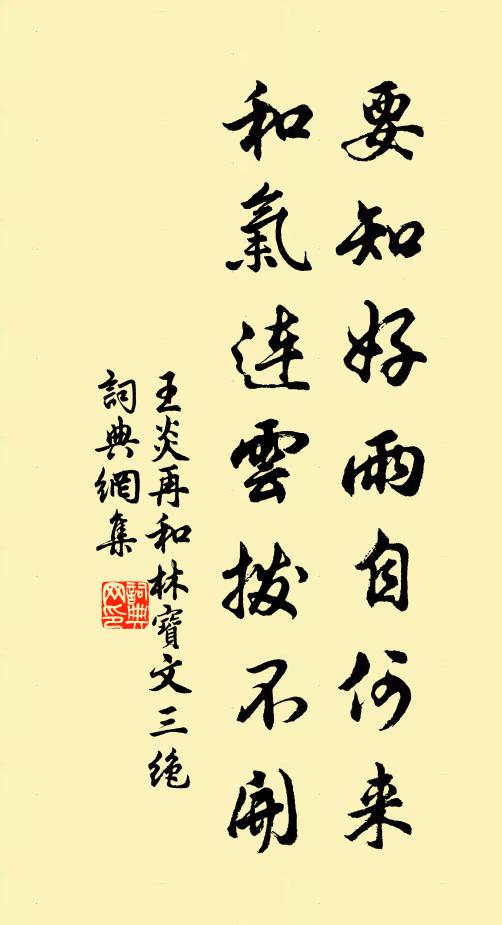 要知好雨自何来
和氣連雲撥不開
王炎再和林寶文三絶
詞典網集
詞典网印